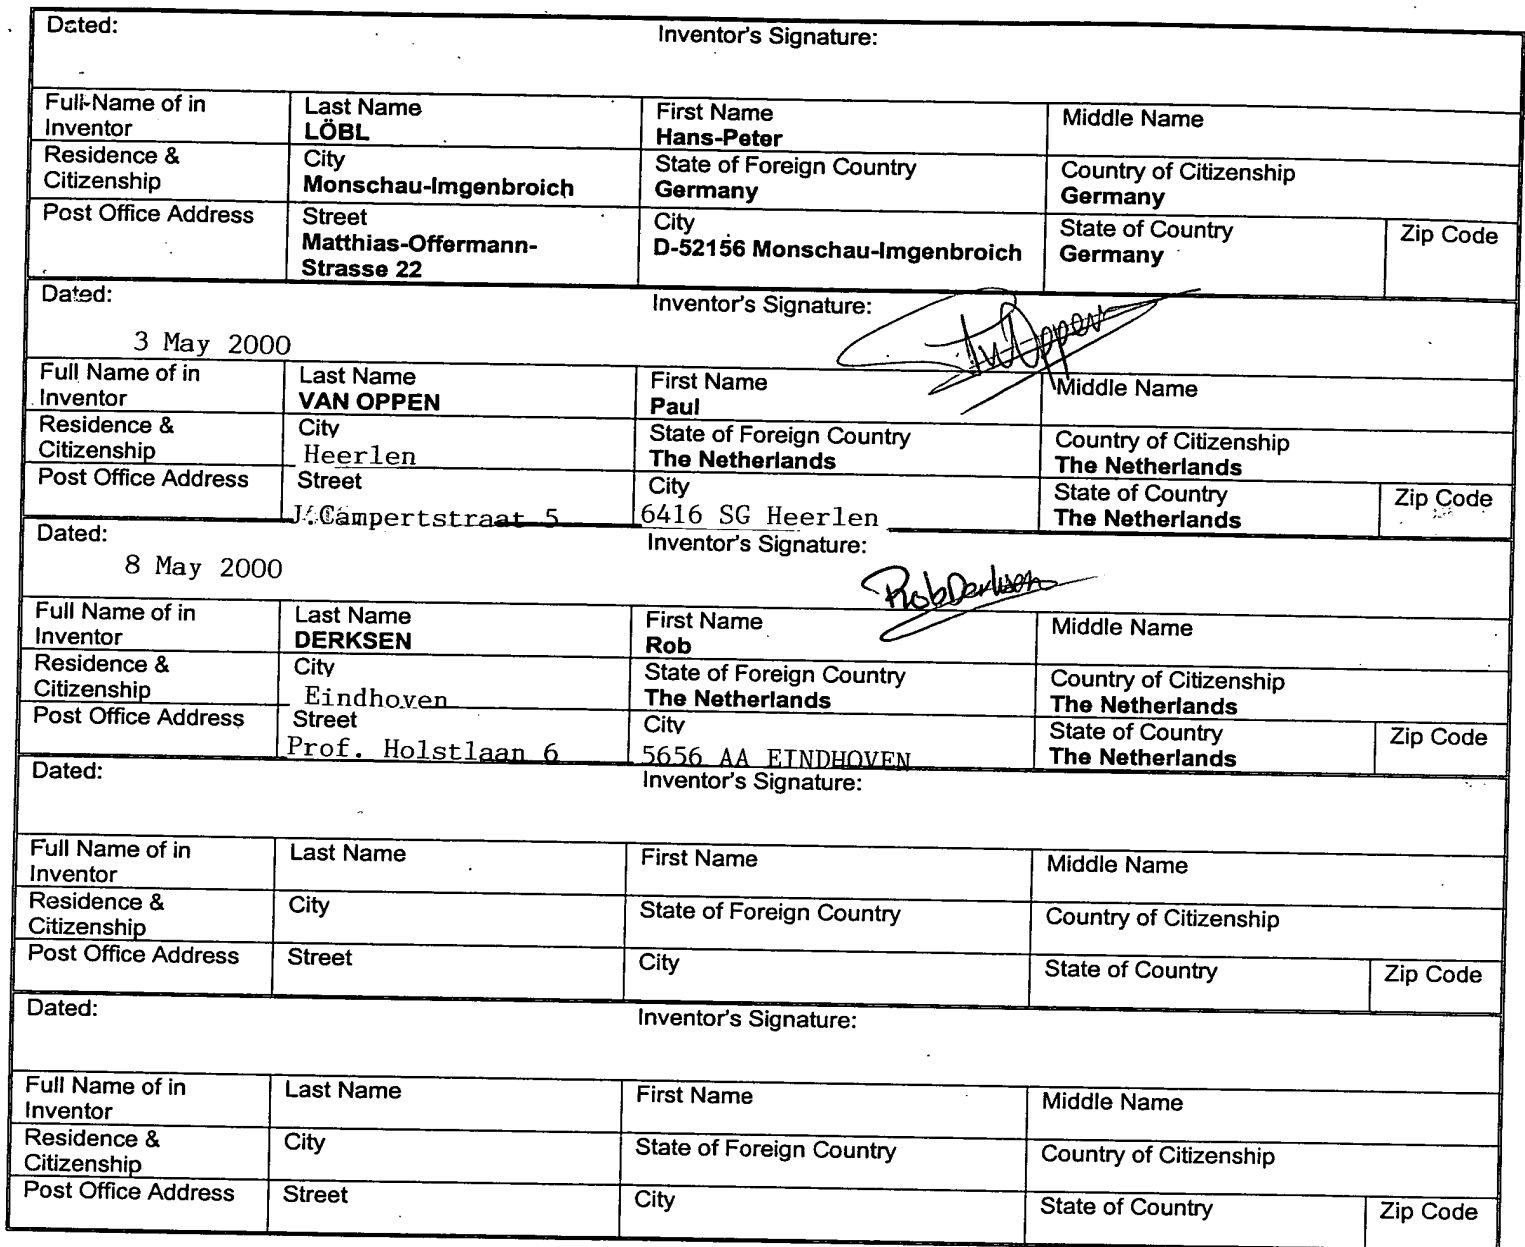 Dated: Inventor's Signature:
Full Name of in Inventor Last Name LÖBL First Name Hans-Peter Middle Name
Residence & Citizenship City Monschau-Imgenbroich State of Foreign Country Germany Country of Citizenship Germany
Post Office Address Street Matthias-Offermann-Strasse 22 City D-52156 Monschau-Imgenbroich State of Country Germany Zip Code
Dated: Inventor's Signature:
3 May 2000
Full Name of in Inventor Last Name VAN OPPEN First Name Paul Middle Name
Residence & Citizenship City Heerlen State of Foreign Country The Netherlands Country of Citizenship The Netherlands
Post Office Address Street J.Campertstraat 5 City 6416 SG Heerlen State of Country The Netherlands Zip Code
Dated: Inventor's Signature:
8 May 2000 Rob Derksen
Full Name of in Inventor Last Name DERKSEN First Name Rob Middle Name
Residence & Citizenship City Eindhoven State of Foreign Country The Netherlands Country of Citizenship The Netherlands
Post Office Address Street Prof. Holstlaan 6 City 5656 AA EINDHOVEN State of Country The Netherlands Zip Code
Dated: Inventor's Signature:
Full Name of in Inventor Last Name First Name Middle Name
Residence & Citizenship City State of Foreign Country Country of Citizenship
Post Office Address Street City State of Country Zip Code
Dated: Inventor's Signature:
Full Name of in Inventor Last Name First Name Middle Name
Residence & Citizenship City State of Foreign Country Country of Citizenship
Post Office Address Street City State of Country Zip Code